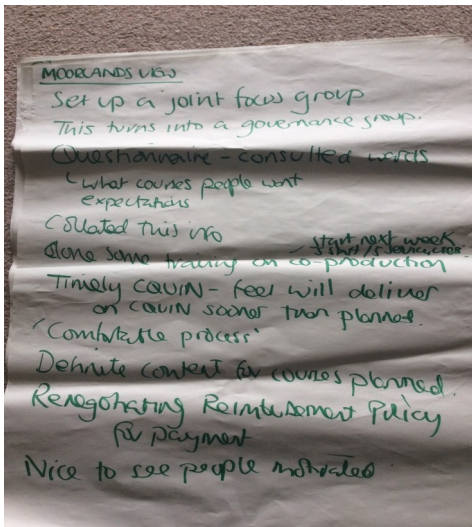 MOORLANDS VIEW
Set up a joint focus group
This turns into a governance group.
Questionnaire - consulted wards
what courses people want
expectations
Collated this info
start next week
staff / service users
done some training on co-production
Timely CQUIN - feel will deliver
on CQUIN sooner than planned.
'Comfortable process'
Definite content for courses planned.
Renegotiating Reimbursement Policy
for payment
Nice to see people motivated.